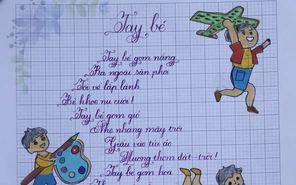 Tay bé
Tay bé gom nắng
Ra ngoài sân phơi
Tới về lấp lánh
Bé khoe nụ cười!
Tay bé gom gió
Nhẹ nhàng mây trôi
Giấu vào túi áo
Hương thơm đất trời!
Tay bé gom hoa